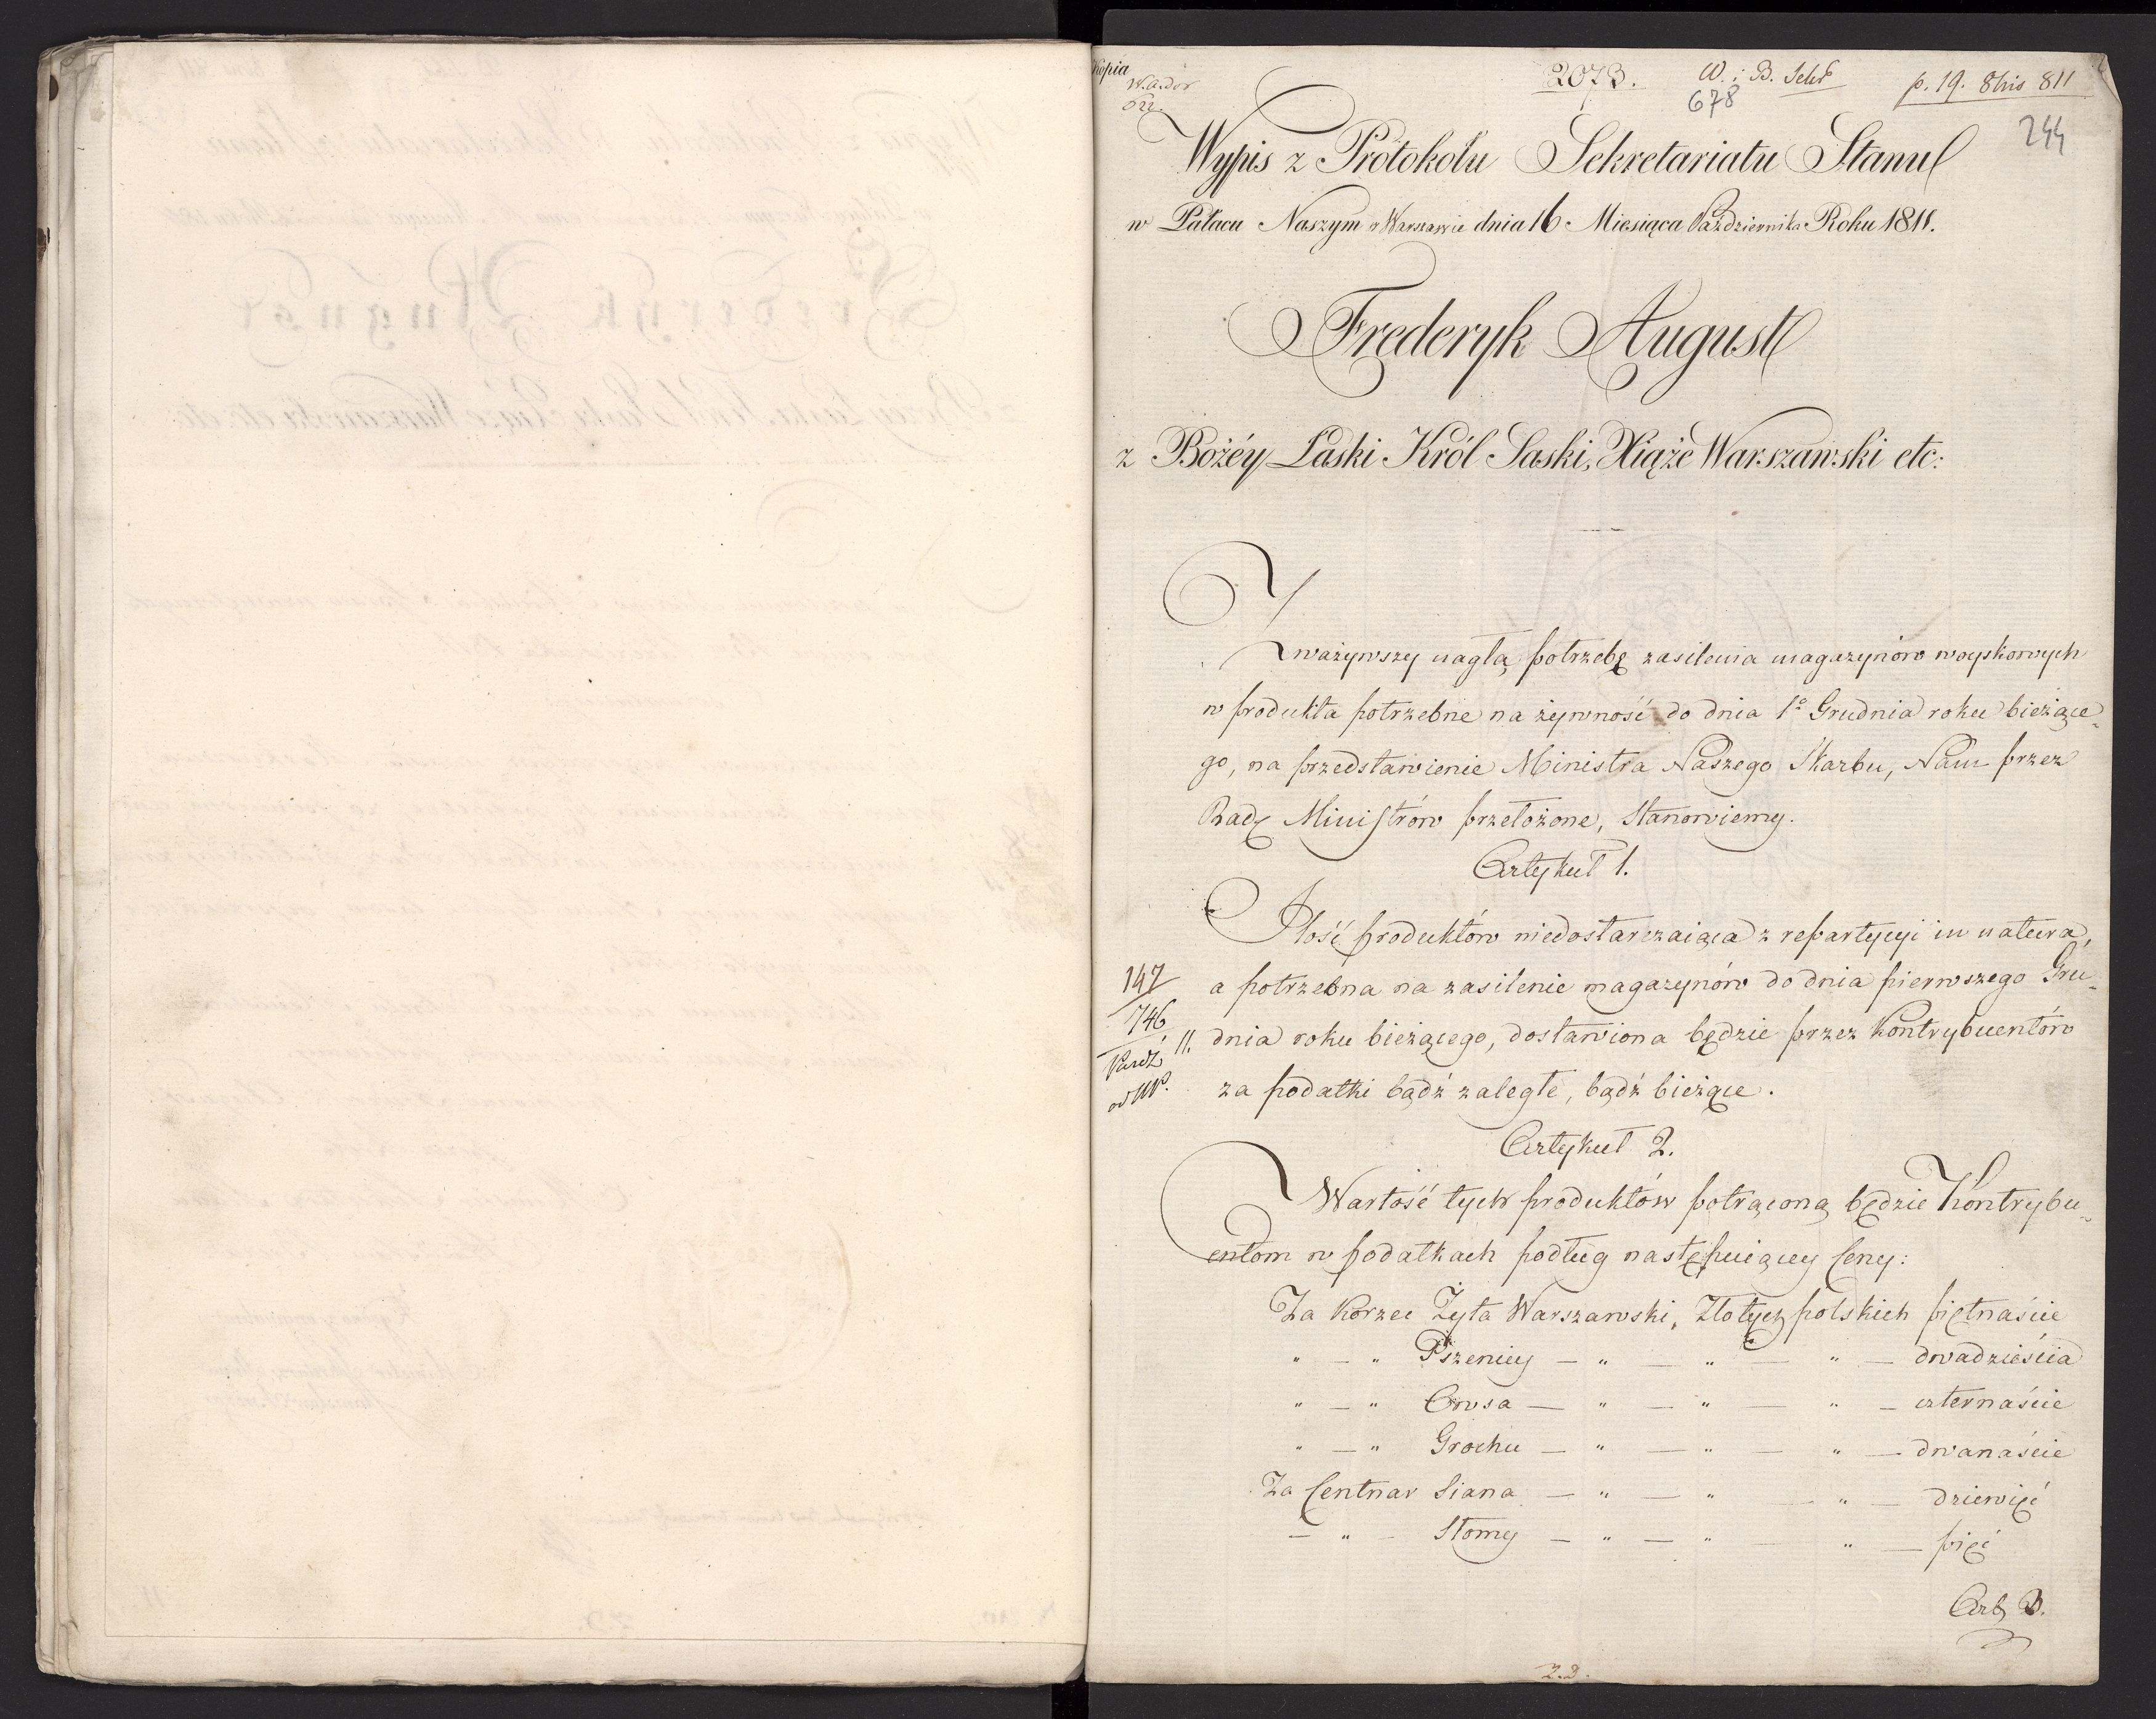 Kopia
2073.
W. i B. Sekr
678
p. 19. 8bris 811
244
Wypis z Protokołu Sekretariatu Stanu
w Pałacu Naszym w Warszawie dnia 16 Miesiąca Października Roku 1811.
Frederyk August
z Bożéy Łaski Król Saski, Xiąże Warszawski etc:
Zważywszy nagłą potrzebę zasilenia magazynów woyskowych
w produkta potrzebne na żywność do dnia 1º Grudnia roku bieżące-
go, na przedstawienie Ministra Naszego Skarbu, Nam przez
Radę Ministrów przełożone, Stanowiemy.
Artykuł 1.
Ilość produktów niedostarczaiąca z repartycyi in natura,
a potrzebna na zasilenie magazynów do dnia pierwszego Gru-
dnia roku bieżącego, dostawiona będzie przez Kontrybuentów
za podatki bądź zaległe, bądź bieżące.
147
746
11.
Artykuł 2.
Wartość tych produktów potrąconą będzie Kontrybu-
entom w podatkach podług następuiącey Ceny:
Za Korzec Żyta Warszawski, Złotych polskich piętnaście
" — " Pszenicy — " — " — " — dwadzieścia
" — " Owsa — " — " — " — czternaście
" — " Grochu — " — " — " — dwanaście
Za Centnar Siana — " — " — " — dziewięć
— " — Słomy — " — " — " — pięć
Art 3.